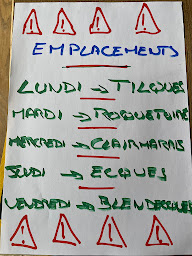 EMPLACEMENTS
LUNDI → TILQUES
MARDI → ROQUETOIRE
MERCREDI → CLAIRMARAIS
JEUDI → ECQUES
VENDREDI → BLENDECQUES